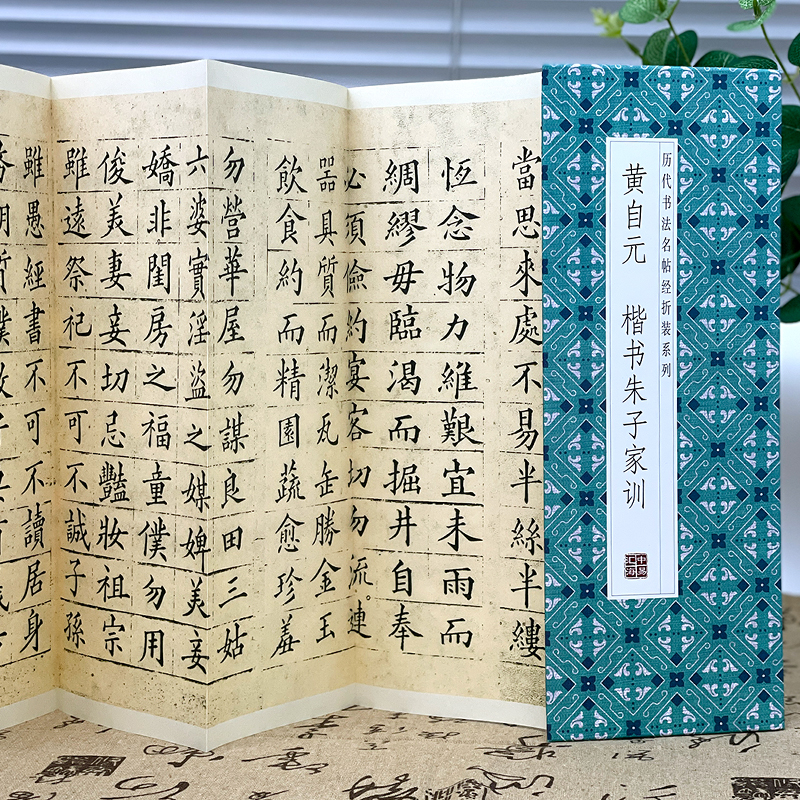 历代书法名帖经折装系列
黄自元 楷书朱子家训
中易汇海
當思來處不易半絲半縷
恆念物力維艱宜未雨而
綢繆毋臨渴而掘井自奉
必須儉約宴客切勿流。連
噐具質而潔瓦缶勝金玉
飲食約而精園蔬愈珍羞
勿營華屋勿謀良田三姑
六婆實淫盜之媒婢美妾
嬌非閨房之福童僕勿用
俊美妻妾切忌豔妝祖宗
雖遠祭祀不可不誠子孫
雖愚經書不可不讀居身